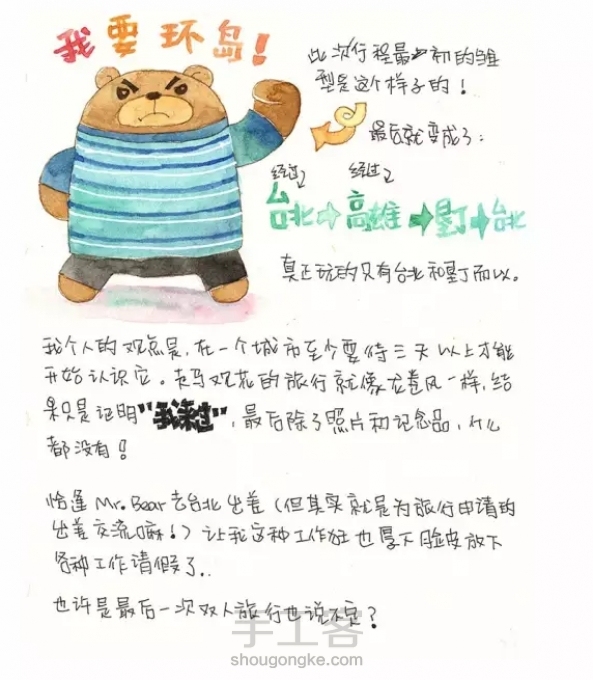 我要环岛！
此次行程最初的雏
型是这个样子的！
最后就变成了：
经过 经过
台北→高雄→垦丁→台北
真正玩的只有台北和垦丁而以。
我个人的观点是，在一个城市至少要待三天以上才能
开始认识它。走马观花的旅行就像龙卷风一样，结
果只是证明"我来过"，最后除了照片和记念品，什么
都没有！
恰逢Mr.Bear去台北出差（但其实就是为旅行申请的
出差交流嘛！）让我这种工作狂也厚下脸皮放下
各种工作请假了..
也许是最后一次双人旅行也说不定？
手工客
shougongke.com